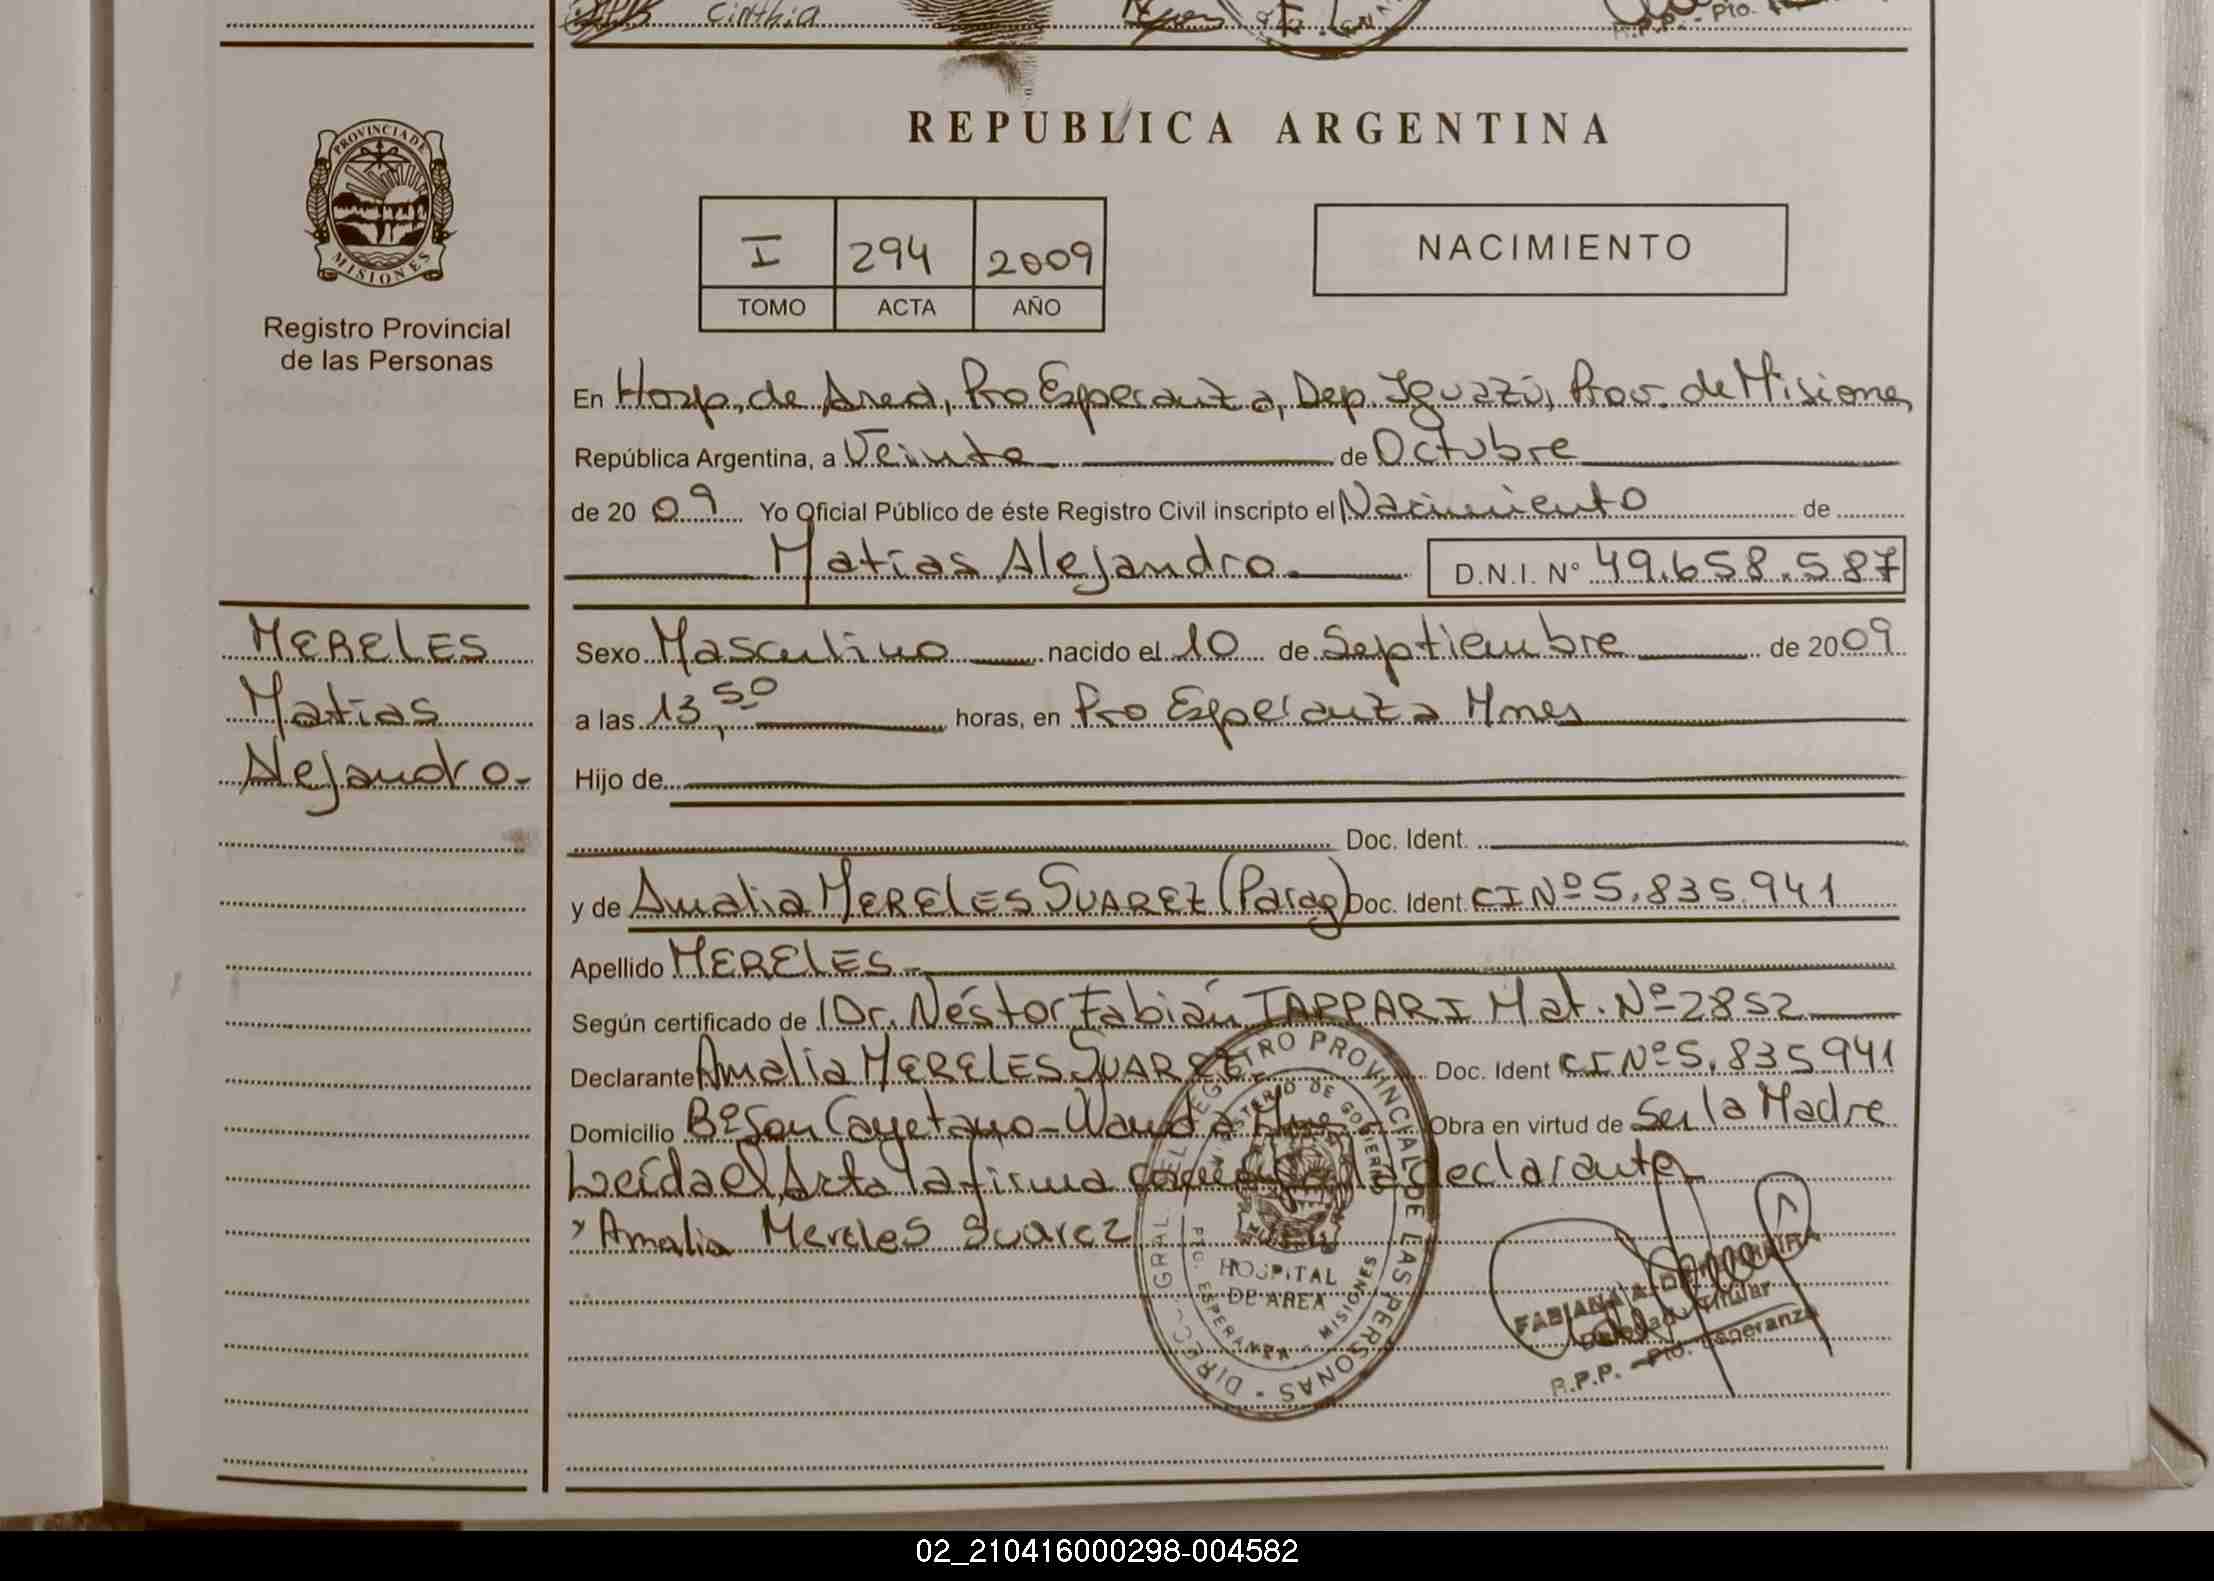 Cinthia
R.P.P. - Pto.
PROVINCIA DE
MISIONES
Registro Provincial
de las Personas
REPUBLICA ARGENTINA
I 294 2009
TOMO ACTA AÑO
NACIMIENTO
En Hosp. de Area, Pto Esperanza, Dep. Iguazú, Prov. de Misiones
República Argentina, a Veinte de Octubre
de 2009 Yo Oficial Público de éste Registro Civil inscripto el Nacimiento de
Matías Alejandro D.N.I. Nº 49.658.587
MERELES
Matías
Alejandro.
Sexo Masculino nacido el 10 de Septiembre de 2009
a las 13,50 horas, en Pto Esperanza Mnes
Hijo de
Doc. Ident.
y de Amalia MERELES SUAREZ (Parag) Doc. Ident. CI Nº 5.835.941
Apellido MERELES
Según certificado de Dr. Néstor Fabián TAPPARI Mat. Nº 2852
Declarante Amalia MERELES SUAREZ Doc. Ident CI Nº 5.835941
Domicilio Bº San Cayetano - Wanda Mnes Obra en virtud de Ser la Madre
Leída el Acta la firma la declarante
Amalia Mereles Suarez
REGISTRO PROVINCIAL DE LAS PERSONAS
MINISTERIO DE GOBIERNO
HOSPITAL
DE AREA
PTO. ESPERANZA - MISIONES
FABIANA A.
Delegada Titular
R.P.P. - Pto. Esperanza
02_210416000298-004582